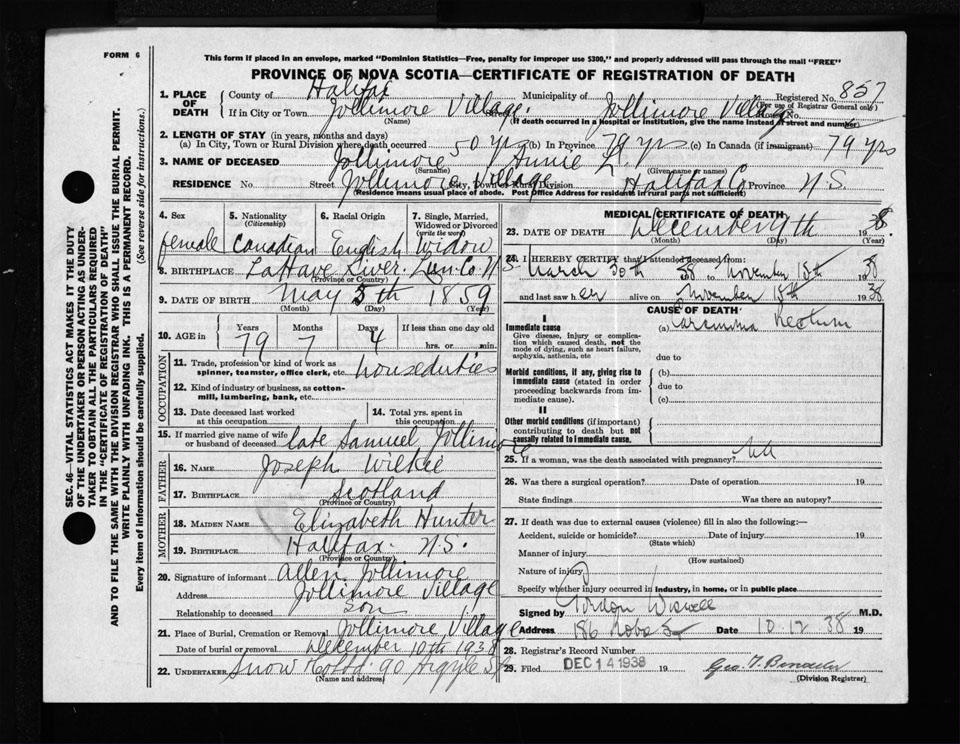 FORM 6
This form if placed in an envelope, marked "Dominion Statistics—Free, penalty for improper use $300," and properly addressed will pass through the mail "FREE"
PROVINCE OF NOVA SCOTIA—CERTIFICATE OF REGISTRATION OF DEATH
SEC. 46—VITAL STATISTICS ACT MAKES IT THE DUTY
OF THE UNDERTAKER OR PERSON ACTING AS UNDER-
TAKER TO OBTAIN ALL THE PARTICULARS REQUIRED
IN THE "CERTIFICATE OF REGISTRATION OF DEATH"
AND TO FILE THE SAME WITH THE DIVISION REGISTRAR WHO SHALL ISSUE THE BURIAL PERMIT.
WRITE PLAINLY WITH UNFADING INK. THIS IS A PERMANENT RECORD.
Every item of information should be carefully supplied. (See reverse side for instructions.)
1. PLACE OF DEATH County of Halifax Municipality of Registered No. 857
(For use of Registrar General only)
If in City or Town Jollimore Village Street Jollimore Village House No.
(Name) (If death occurred in a hospital or institution, give the name instead of street and number)
2. LENGTH OF STAY (in years, months and days)
(a) In City, Town or Rural Division where death occurred 50 yrs (b) In Province 79 yrs (c) In Canada (if immigrant) 79 yrs
3. NAME OF DECEASED Jollimore Annie L.
(Surname) (Given name or names)
RESIDENCE No. Street Jollimore Village City, Town or Rural Division Halifax Co Province N.S.
(Residence means usual place of abode. Post Office Address for residents in rural parts not sufficient)
4. Sex 5. Nationality (Citizenship) 6. Racial Origin 7. Single, Married, Widowed or Divorced (write the word)
female Canadian English Widow
8. BIRTHPLACE LaHave River. Lun. Co. N.S.
(Province or Country)
9. DATE OF BIRTH May 5th 1859
(Month) (Day) (Year)
10. AGE in Years Months Days If less than one day
79 7 4 hrs. or min.
OCCUPATION
11. Trade, profession or kind of work as spinner, teamster, office clerk, etc. houseduties
12. Kind of industry or business, as cotton-mill, lumbering, bank, etc.
13. Date deceased last worked at this occupation
14. Total yrs. spent in this occupation
15. If married give name of wife or husband of deceased late Samuel Jollimore
FATHER
16. NAME Joseph Wilkie
17. BIRTHPLACE Scotland
(Province or Country)
MOTHER
18. MAIDEN NAME Elizabeth Hunter
19. BIRTHPLACE Halifax. N.S.
(Province or Country)
20. Signature of informant Allen Jollimore
Address Jollimore Village
Relationship to deceased son
21. Place of Burial, Cremation or Removal Jollimore Village
Date of burial or removal December 10th 1938
22. UNDERTAKER Snow Co Ltd 90 Argyle St
(Name and address)
MEDICAL CERTIFICATE OF DEATH
23. DATE OF DEATH December 9th 1938
(Month) (Day) (Year)
24. I HEREBY CERTIFY that I attended deceased from:
March 30th 38 to November 18th 1938
and last saw her alive on November 18th 1938
CAUSE OF DEATH
I
Immediate cause (a) Carcinoma Rectum
Give disease, injury or complication which caused death, not the mode of dying, such as heart failure, asphyxia, asthenia, etc
due to
Morbid conditions, if any, giving rise to immediate cause (stated in order proceeding backwards from immediate cause).
(b)
due to
(c)
II
Other morbid conditions (if important) contributing to death but not causally related to immediate cause.
25. If a woman, was the death associated with pregnancy? No
26. Was there a surgical operation? Date of operation 19
State findings Was there an autopsy?
27. If death was due to external causes (violence) fill in also the following:—
Accident, suicide or homicide? Date of injury 19
(State which)
Manner of injury
(How sustained)
Nature of injury
Specify whether injury occurred in industry, in home, or in public place
Signed by Gordon Wiswell M.D.
Address 186 Date 10.12 38 19
28. Registrar's Record Number
29. Filed DEC 14 1938 19 Geo. T.
(Division Registrar)